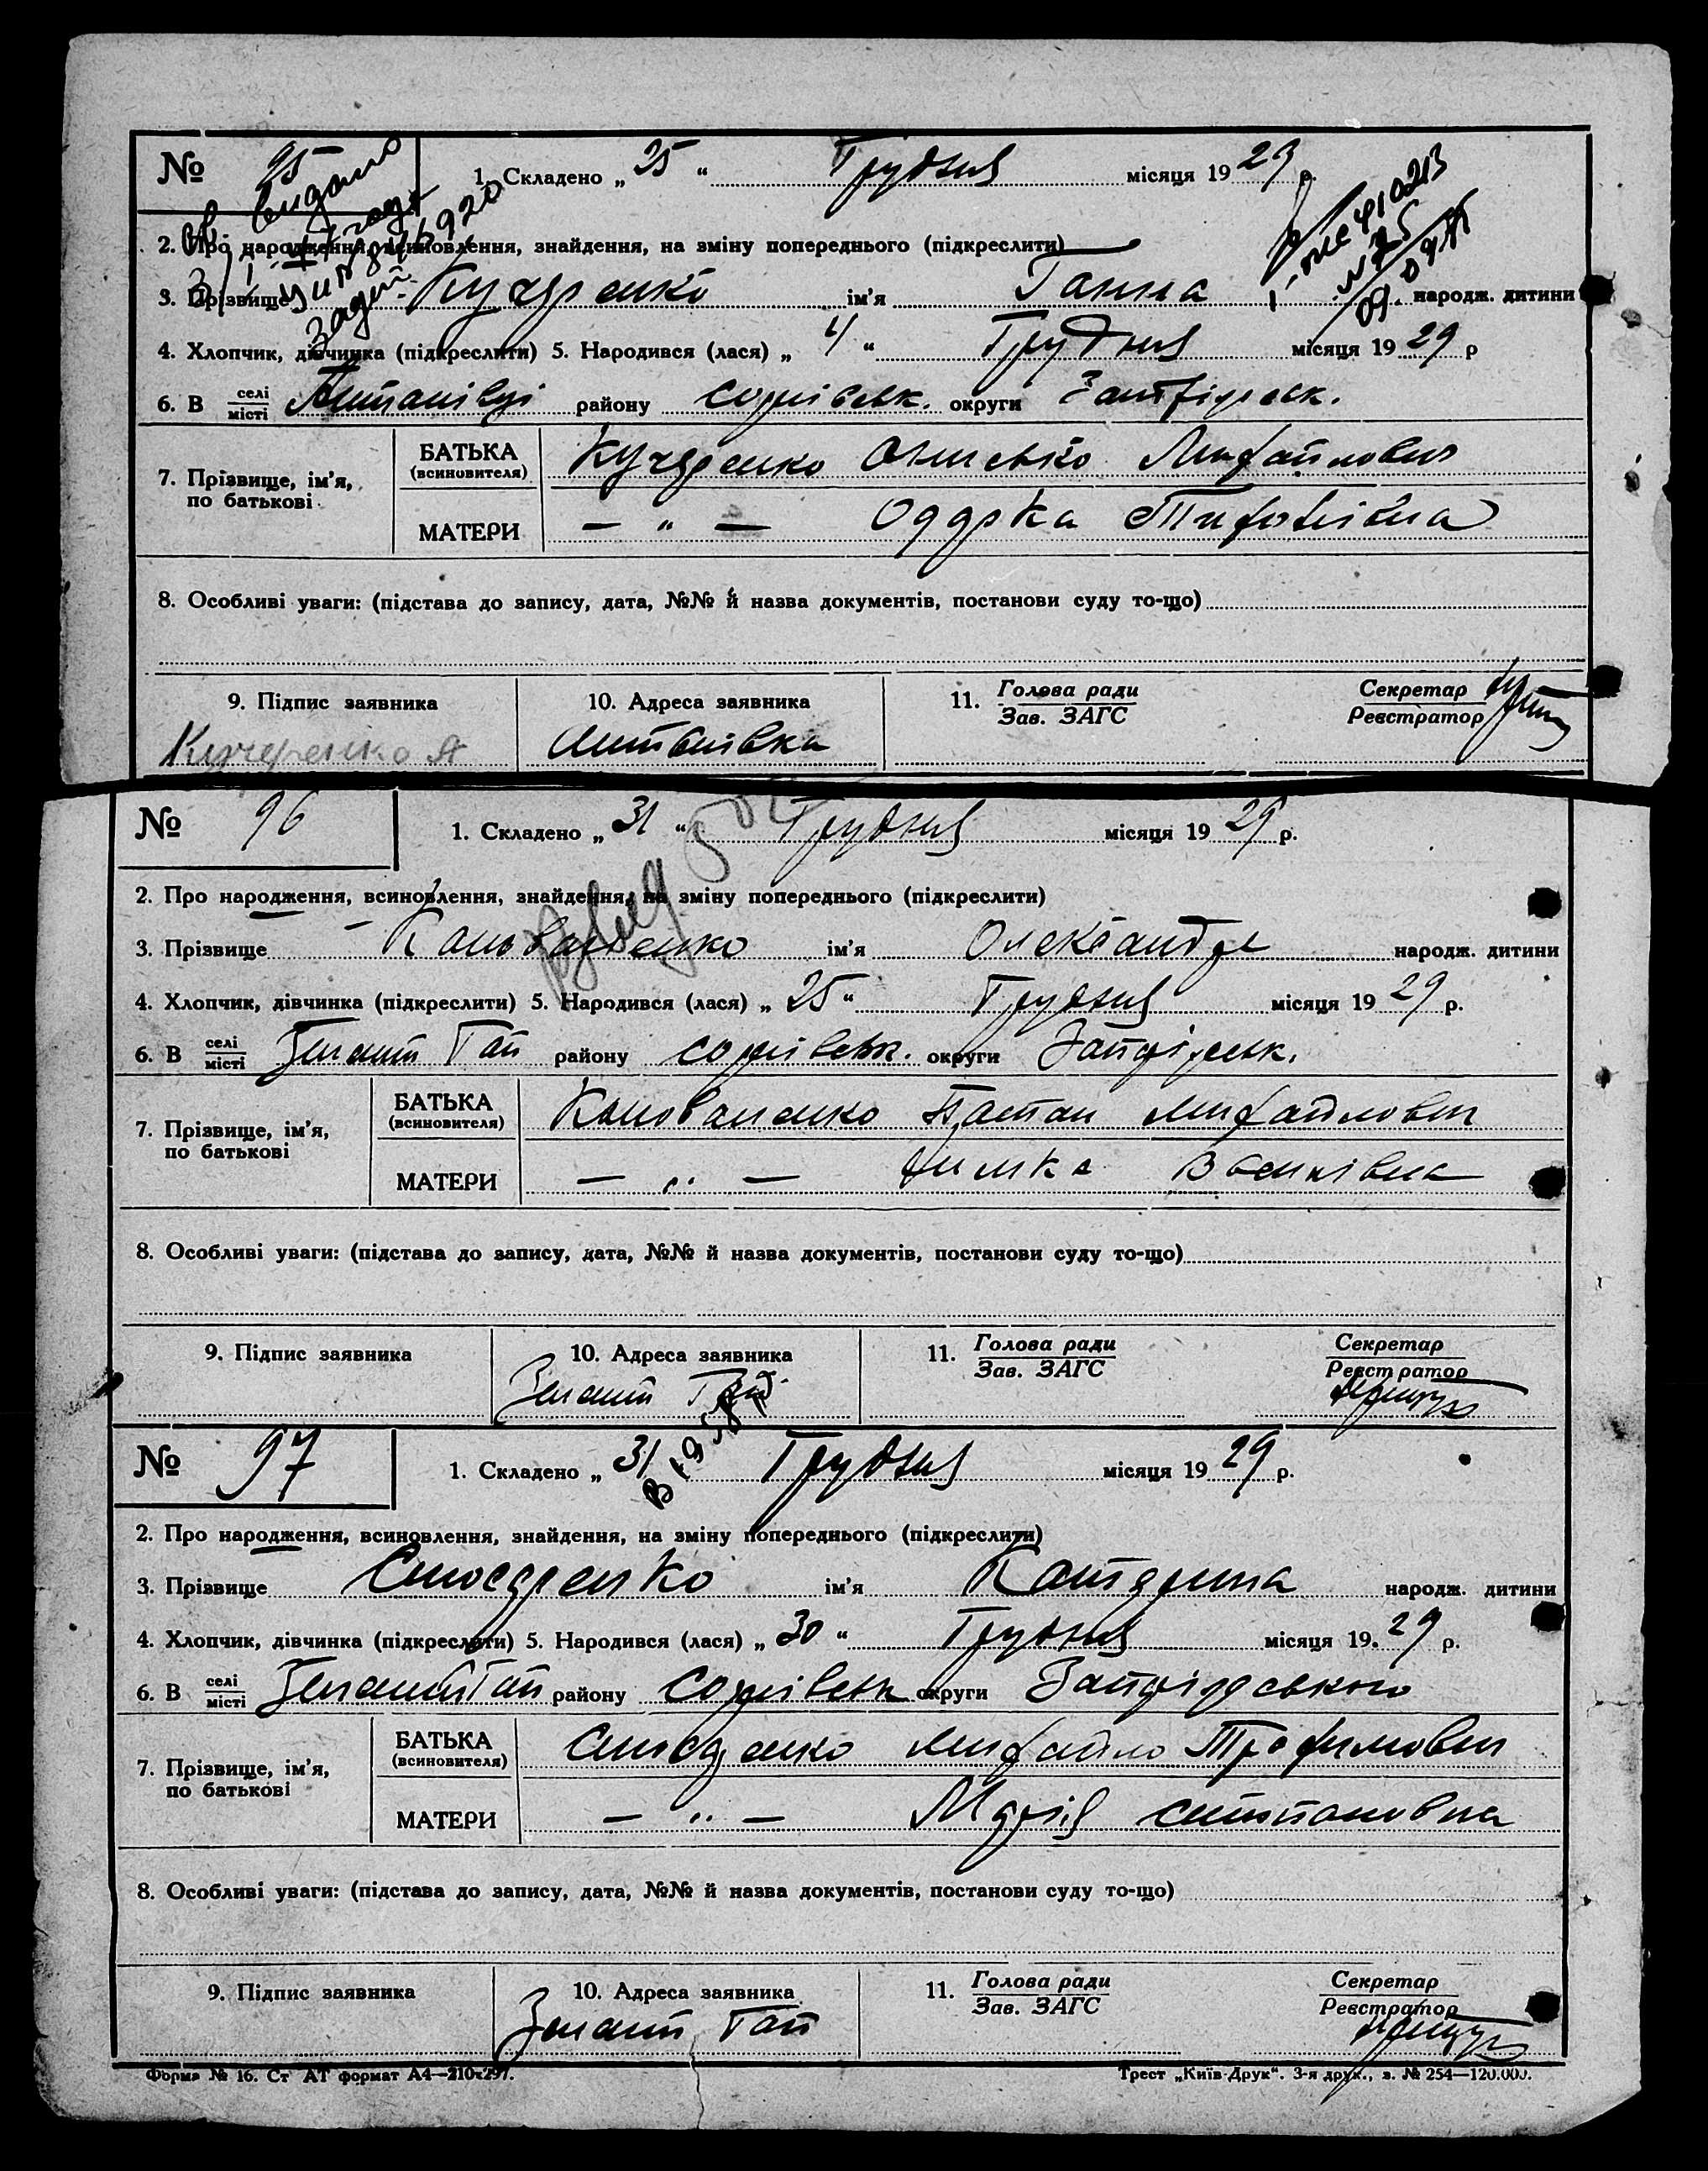 № 95 1. Складено „ 25 “ Грудня місяця 19 29 р.
2. Про народження, всиновлення, знайдення, на зміну попереднього (підкреслити)
3. Прізвище Кучеренко ім'я Ганна народж. дитини
4. Хлопчик, дівчинка (підкреслити) 5. Народився (лася) „ 4 “ Грудня місяця 19 29 р
6. В селі місті району софіевськ. округи
7. Прізвище, ім'я, по батькові
БАТЬКА (всиновителя) Кучеренко Онисько Михайлович
МАТЕРИ — „ — Одарка
8. Особливі уваги: (підстава до запису, дата, №№ й назва документів, постанови суду то-що)
9. Підпис заявника 10. Адреса заявника 11. Голова ради Зав. ЗАГС Секретар Реєстратор
Кучеренко
№ 96 1. Складено „ 31 “ Грудня місяця 19 29 р.
2. Про народження, всиновлення, знайдення, на зміну попереднього (підкреслити)
3. Прізвище Коноваленко ім'я Олександр народж. дитини
4. Хлопчик, дівчинка (підкреслити) 5. Народився (лася) „ 25 “ Грудня місяця 19 29 р.
6. В селі місті Зелений Гай району софіевськ. округи Запоріськ.
7. Прізвище, ім'я, по батькові
БАТЬКА (всиновителя) Коноваленко Михайлович
МАТЕРИ — „ —
8. Особливі уваги: (підстава до запису, дата, №№ й назва документів, постанови суду то-що)
9. Підпис заявника 10. Адреса заявника 11. Голова ради Зав. ЗАГС Секретар Реєстратор
Зелений Гай
№ 97 1. Складено „ 31 Грудня місяця 19 29 р.
2. Про народження, всиновлення, знайдення, на зміну попереднього (підкреслити)
3. Прізвище ім'я Катерина народж. дитини
4. Хлопчик, дівчинка (підкреслити) 5. Народився (лася) „ 30 “ Грудня місяця 19. 29 р.
6. В селі місті Зелений Гай району софіевськ округи
7. Прізвище, ім'я, по батькові
БАТЬКА (всиновителя) Михайло Трофимович
МАТЕРИ — „ — Марія
8. Особливі уваги: (підстава до запису, дата, №№ й назва документів, постанови суду то-що)
9. Підпис заявника 10. Адреса заявника 11. Голова ради Зав. ЗАГС Секретар Реєстратор
Зелений Гай
Форма № 16. Ст АТ формат А4—210х297. Трест „Київ-Друк“. 3-я друк., з. № 254—120.000.